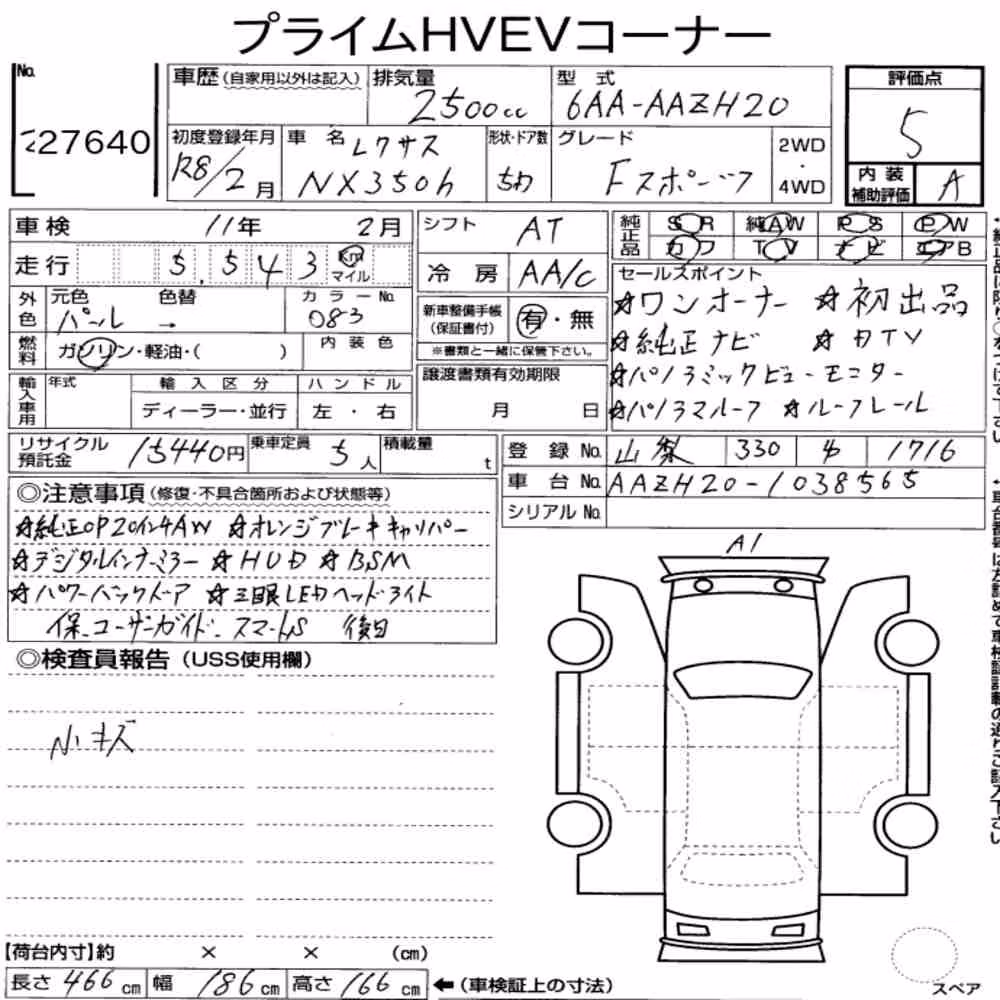 プライムHVEVコーナー
No. 27640
車歴(自家用以外は記入)
排気量 2500cc
型式 6AA-AAZH20
評価点 5
初度登録年月 R8/2月
車名 レクサス NX350h
形状・ドア数 5W
グレード Fスポーツ
2WD・4WD
内装補助評価 A
車検 11年 2月
シフト AT
純正品 SR 純AW PS PW
カワ TV ナビ エアB
走行 5,543 Km マイル
冷房 AA/C
セールスポイント
☆ワンオーナー ☆初出品
☆純正ナビ ☆DTV
☆パノラミックビューモニター
☆パノラマルーフ ☆ルーフレール
外色 元色 パール 色替 → カラーNo. 083
新車整備手帳(保証書付) 有・無
※書類と一緒に保管下さい。
燃料 ガソリン・軽油・( ) 内装色
輸入車用 年式 輸入区分 ハンドル
ディーラー・並行 左・右
譲渡書類有効期限
月 日
リサイクル預託金 15440円 乗車定員 5人 積載量 t
登録No. 山梨 330 1716
車台No. AAZH20-1038565
シリアルNo.
◎注意事項(修復・不具合箇所および状態等)
☆純正OP20インチAW ☆オレンジブレーキキャリパー
☆デジタルインナーミラー ☆HUD ☆BSM
☆パワーバックドア ☆三眼LEDヘッドライト
保、ユーザーガイド、スマートS 後日
◎検査員報告(USS使用欄)
小キズ
A1
【荷台内寸】約 × × (cm)
長さ 466cm 幅 186cm 高さ 166cm ←(車検証上の寸法)
スペア